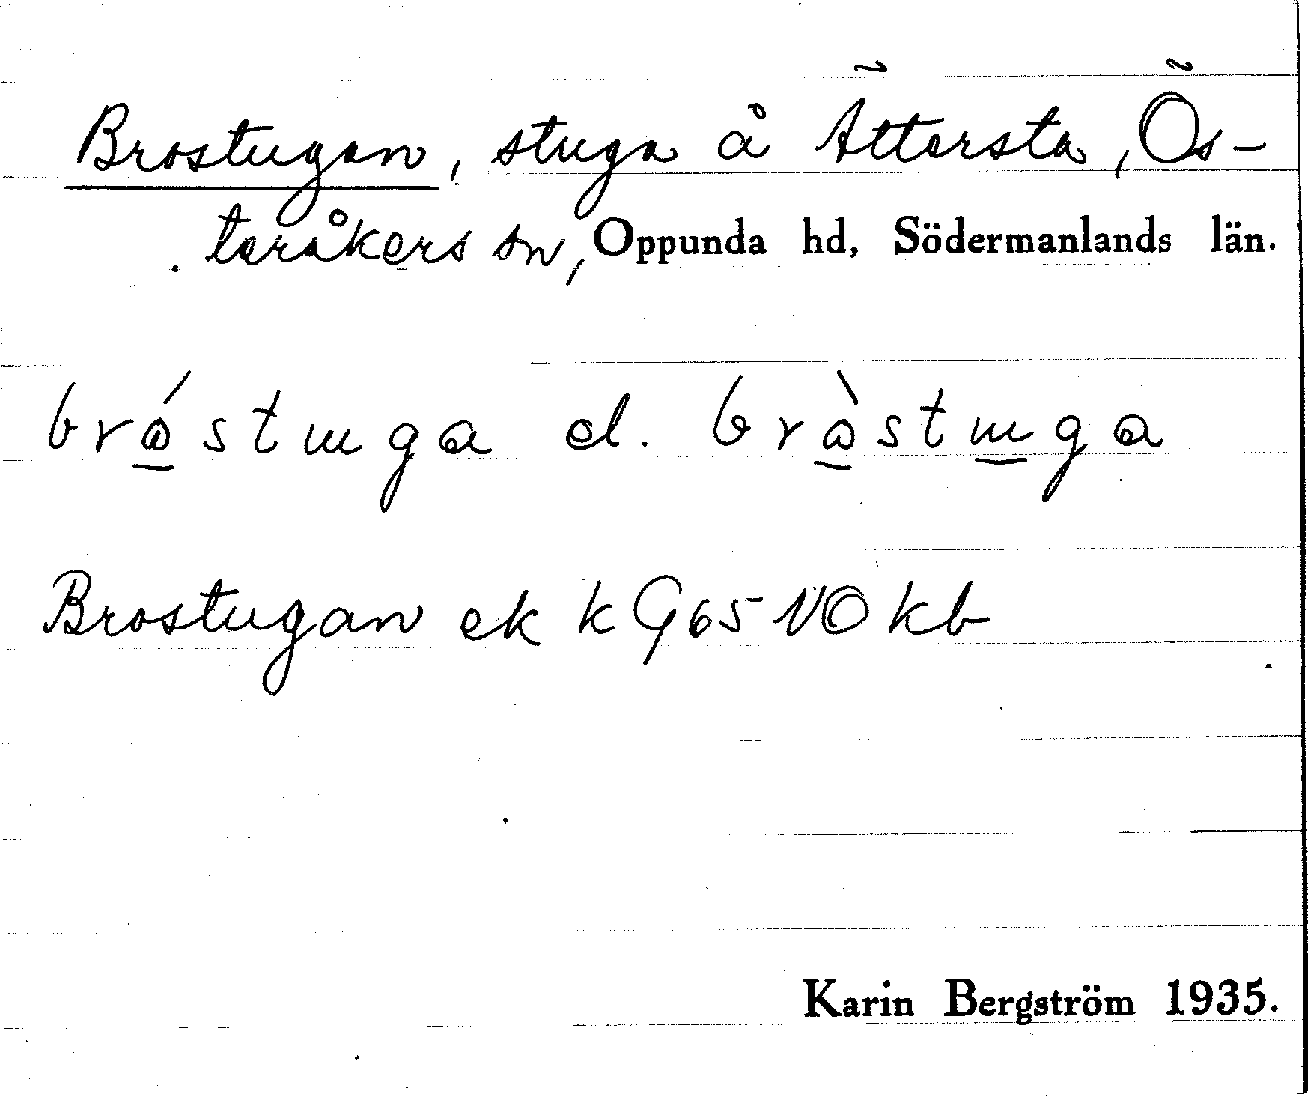 Brostugan, stuga å Ättersta, Ös-
teråkers sn, Oppunda hd, Södermanlands län.
bró̱stɯga el. brò̱stɯ̱ga
Brostugan ek k G65 NO kb
Karin Bergström 1935.